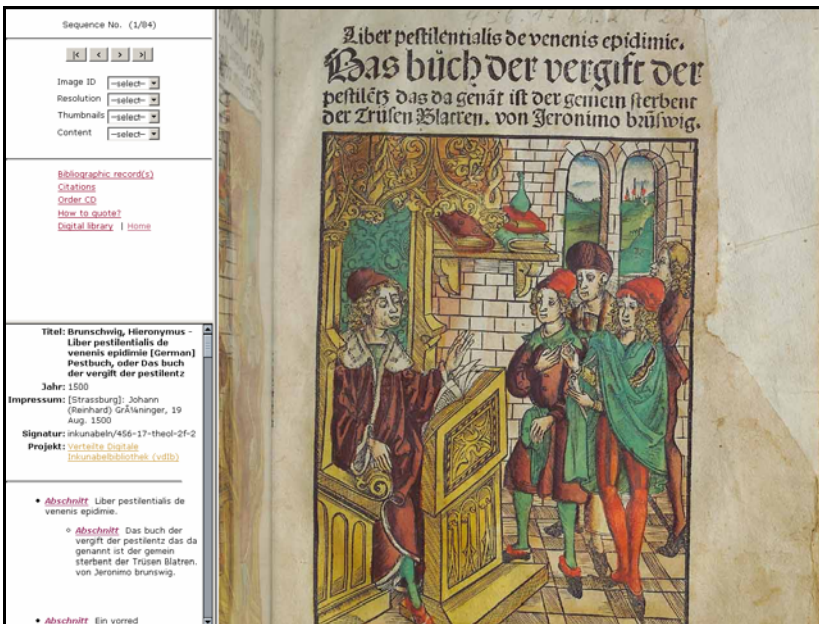 Sequence No. (1/84)
|< < > >|
Image ID --select--
Resolution --select--
Thumbnails --select--
Content --select--
Bibliographic record(s)
Citations
Order CD
How to quote?
Digital library | Home
Titel: Brunschwig, Hieronymus -
Liber pestilentialis de
venenis epidimie [German]
Pestbuch, oder Das buch
der vergift der pestilentz
Jahr: 1500
Impressum: [Strassburg]: Johann
(Reinhard) GrÃ¼ninger, 19
Aug. 1500
Signatur: inkunabeln/456-17-theol-2f-2
Projekt: Verteilte Digitale
Inkunabelbibliothek (vdIb)
• Abschnitt Liber pestilentialis de
venenis epidimie.
○ Abschnitt Das buch der
vergift der pestilentz das da
genannt ist der gemein
sterbent der Trüsen Blatren.
von Jeronimo brunswig.
• Abschnitt Ein vorred
Liber pestilentialis de venenis epidimie.
Das bůch der vergift der
pestilētz das da genāt ist der gemein sterbent
der Trüsen Blatren. von Jeronimo brūswig.